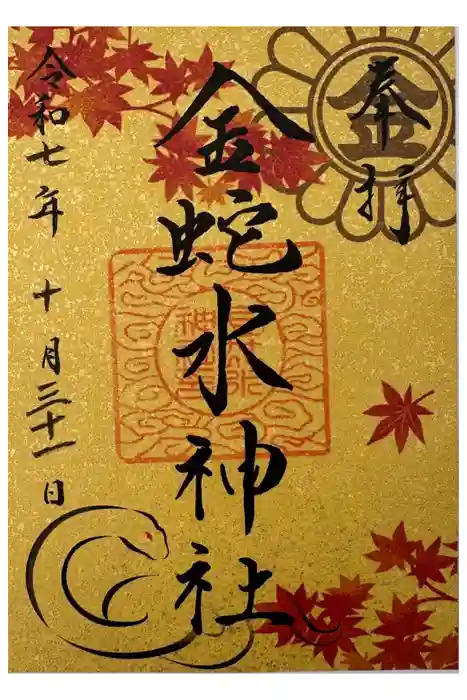 奉拝
金蛇水神社
令和七年 十月三十一日